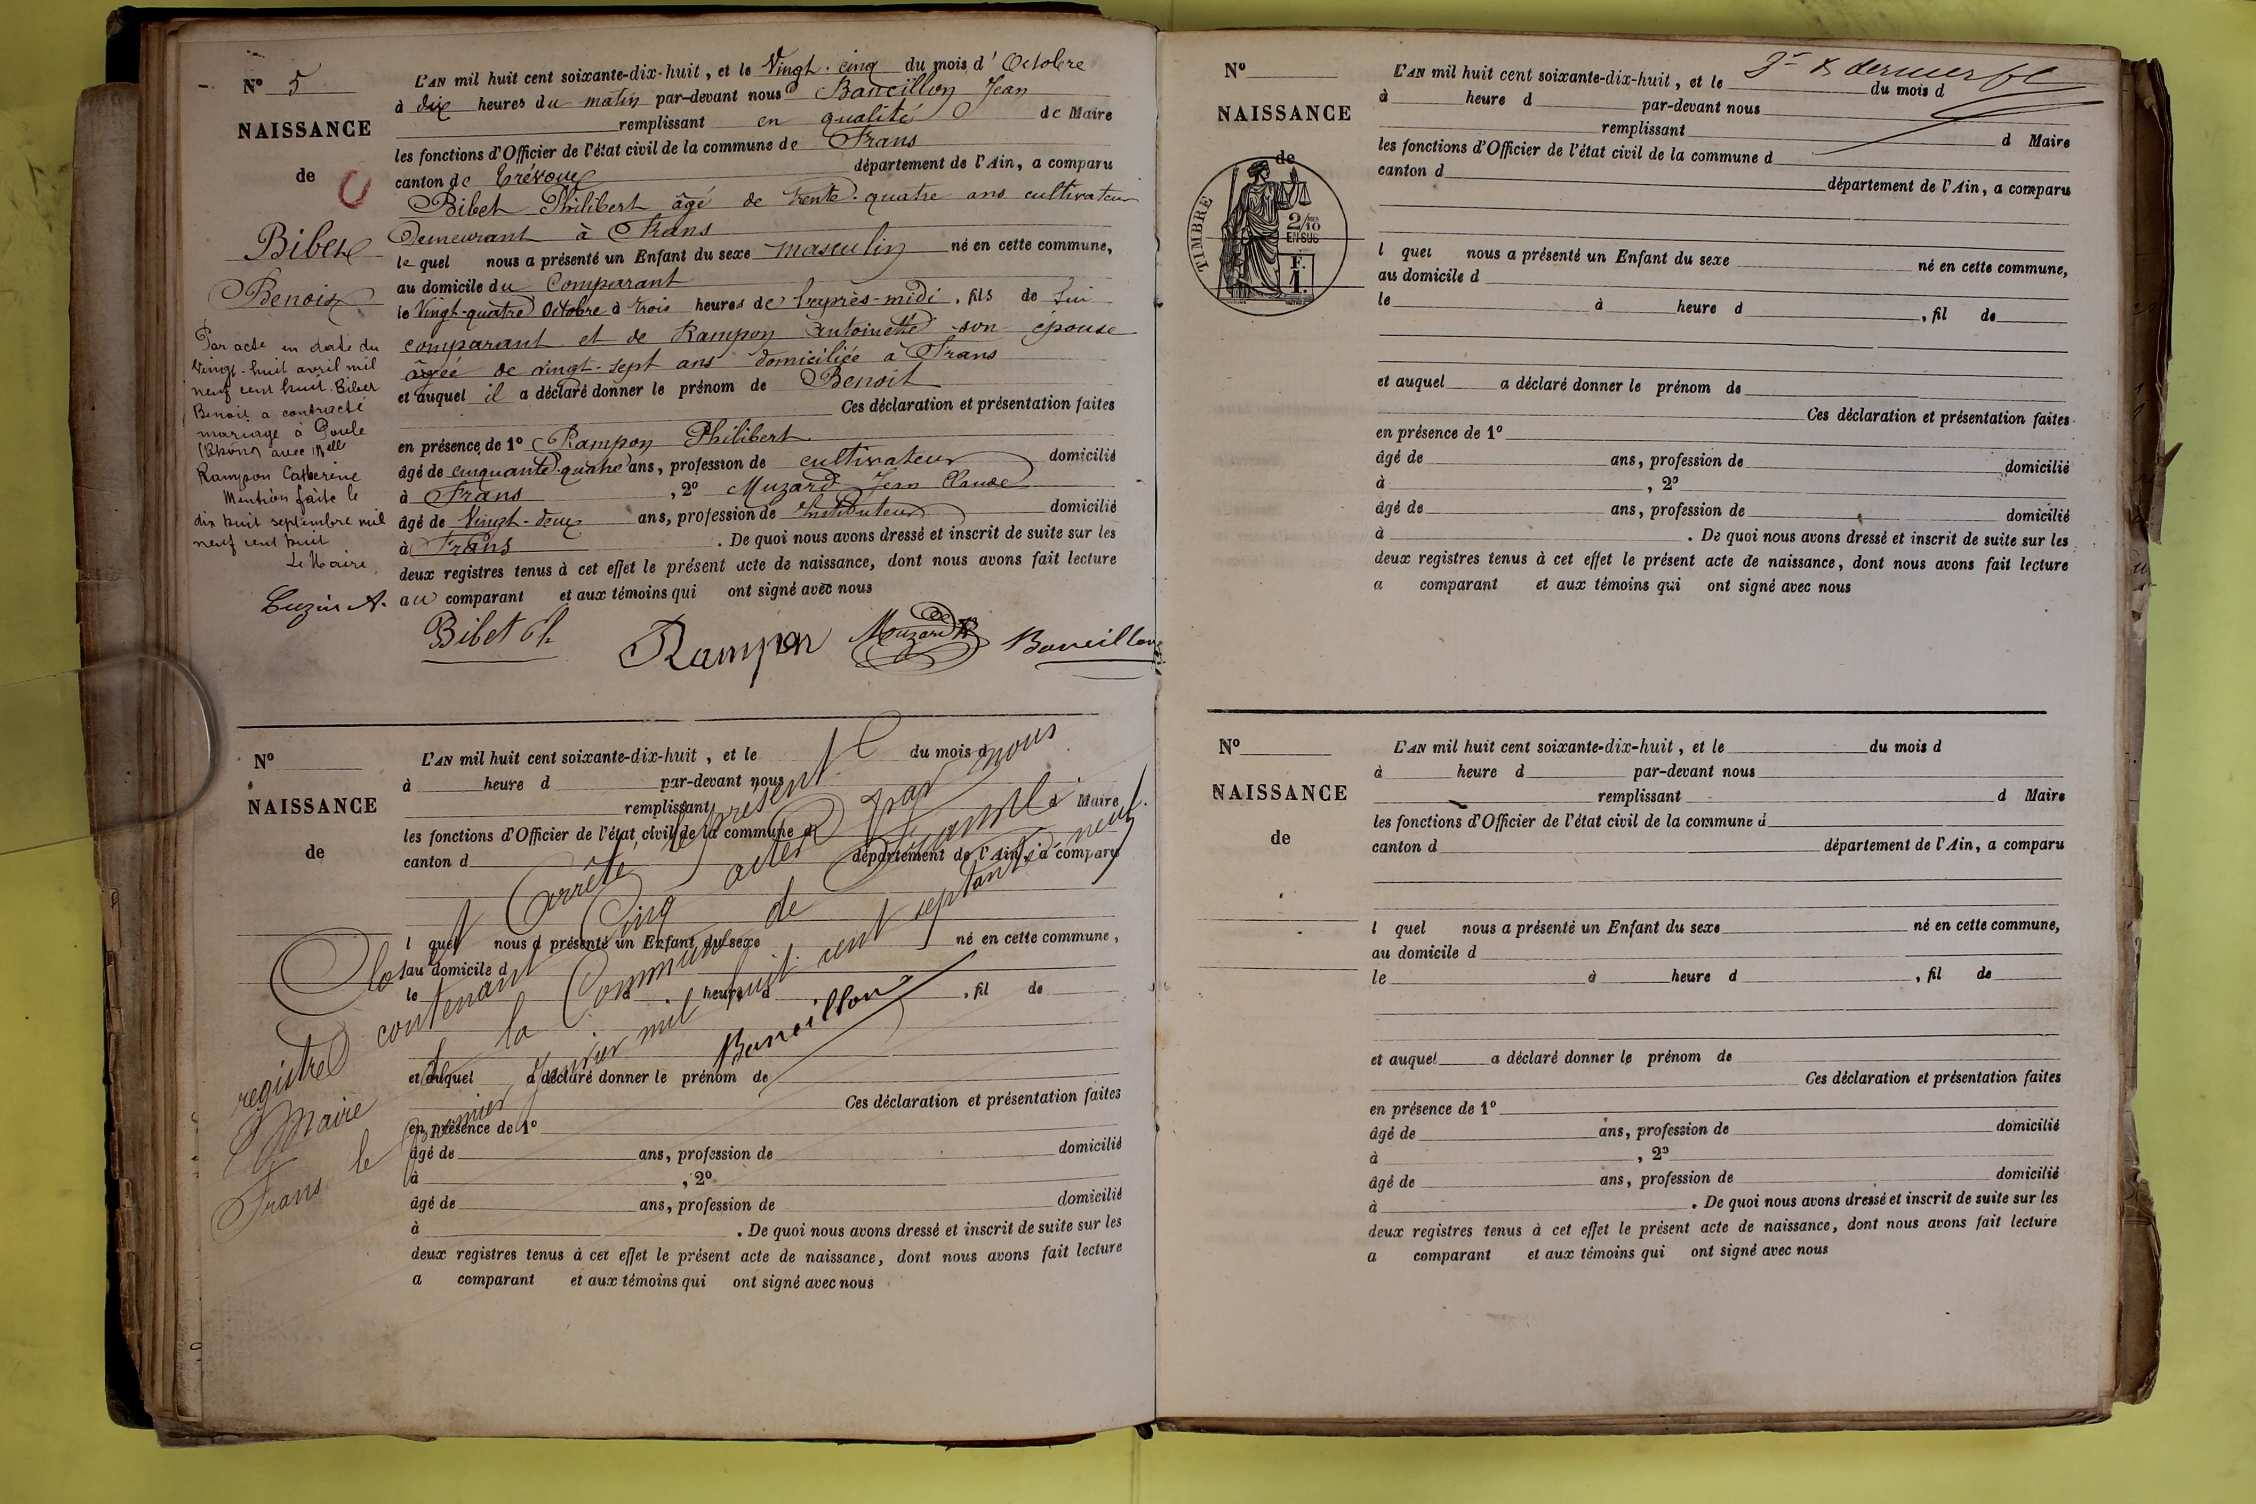 N° 5
NAISSANCE
de
Bibet
Benoit
Par acte en date du
vingt-huit avril mil
neuf cent huit Bibet
Benoit a contracté
mariage à Poule
(Rhône) avec Melle
Rampon Catherine
Mention faite le
dix huit septembre mil
neuf cent huit
Le Maire
Luzin A.
L'AN mil huit cent soixante-dix-huit, et le Vingt-cinq du mois d'Octobre
à dix heures du matin par-devant nous Baneillon Jean
remplissant en qualité de Maire
les fonctions d'Officier de l'état civil de la commune de Frans
canton de Trévoux département de l'Ain, a comparu
Bibet Philibert âgé de trente-quatre ans cultivateur
Demeurant à Frans
le quel nous a présenté un Enfant du sexe masculin né en cette commune,
au domicile du Comparant
le Vingt-quatre Octobre à trois heures de l'après-midi, fils de lui
comparant et de Rampon Antoinette son épouse
âgée de vingt-sept ans domiciliée à Frans
et auquel il a déclaré donner le prénom de Benoit
Ces déclaration et présentation faites
en présence de 1° Rampon Philibert
âgé de cinquante-quatre ans, profession de cultivateur domicilié
à Frans, 2° Muzard Jean Claude
âgé de Vingt-deux ans, profession de Instituteur domicilié
à Frans. De quoi nous avons dressé et inscrit de suite sur les
deux registres tenus à cet effet le présent acte de naissance, dont nous avons fait lecture
au comparant et aux témoins qui ont signé avec nous
Bibet Ph
Rampon
Mouzard
Baneillon
N°
NAISSANCE
de
L'AN mil huit cent soixante-dix-huit, et le du mois d
à heure d par-devant nous
remplissant d Maire
les fonctions d'Officier de l'état civil de la commune d
canton d département de l'Ain, a comparu
l quel nous a présenté un Enfant du sexe né en cette commune,
au domicile d
le à heure d , fil de
et auquel a déclaré donner le prénom de
Ces déclaration et présentation faites
en présence de 1°
âgé de ans, profession de domicilié
à , 2°
âgé de ans, profession de domicilié
à . De quoi nous avons dressé et inscrit de suite sur les
deux registres tenus à cet effet le présent acte de naissance, dont nous avons fait lecture
a comparant et aux témoins qui ont signé avec nous
Clos et Arrêté le présent
registre contenant Cinq actes par nous
Maire de la Commune de Frans
Frans le Premier Janvier mil huit cent septante neuf.
Baneillon
N°
NAISSANCE
de
TIMBRE
2/10
EN SUS
F.
1.
L'AN mil huit cent soixante-dix-huit, et le du mois d
3e & dernier fl
à heure d par-devant nous
remplissant d Maire
les fonctions d'Officier de l'état civil de la commune d
canton d département de l'Ain, a comparu
l quel nous a présenté un Enfant du sexe né en cette commune,
au domicile d
le à heure d , fil de
et auquel a déclaré donner le prénom de
Ces déclaration et présentation faites
en présence de 1°
âgé de ans, profession de domicilié
à , 2°
âgé de ans, profession de domicilié
à . De quoi nous avons dressé et inscrit de suite sur les
deux registres tenus à cet effet le présent acte de naissance, dont nous avons fait lecture
a comparant et aux témoins qui ont signé avec nous
N°
NAISSANCE
de
L'AN mil huit cent soixante-dix-huit, et le du mois d
à heure d par-devant nous
remplissant d Maire
les fonctions d'Officier de l'état civil de la commune d
canton d département de l'Ain, a comparu
l quel nous a présenté un Enfant du sexe né en cette commune,
au domicile d
le à heure d , fil de
et auquel a déclaré donner le prénom de
Ces déclaration et présentation faites
en présence de 1°
âgé de ans, profession de domicilié
à , 2°
âgé de ans, profession de domicilié
à . De quoi nous avons dressé et inscrit de suite sur les
deux registres tenus à cet effet le présent acte de naissance, dont nous avons fait lecture
a comparant et aux témoins qui ont signé avec nous